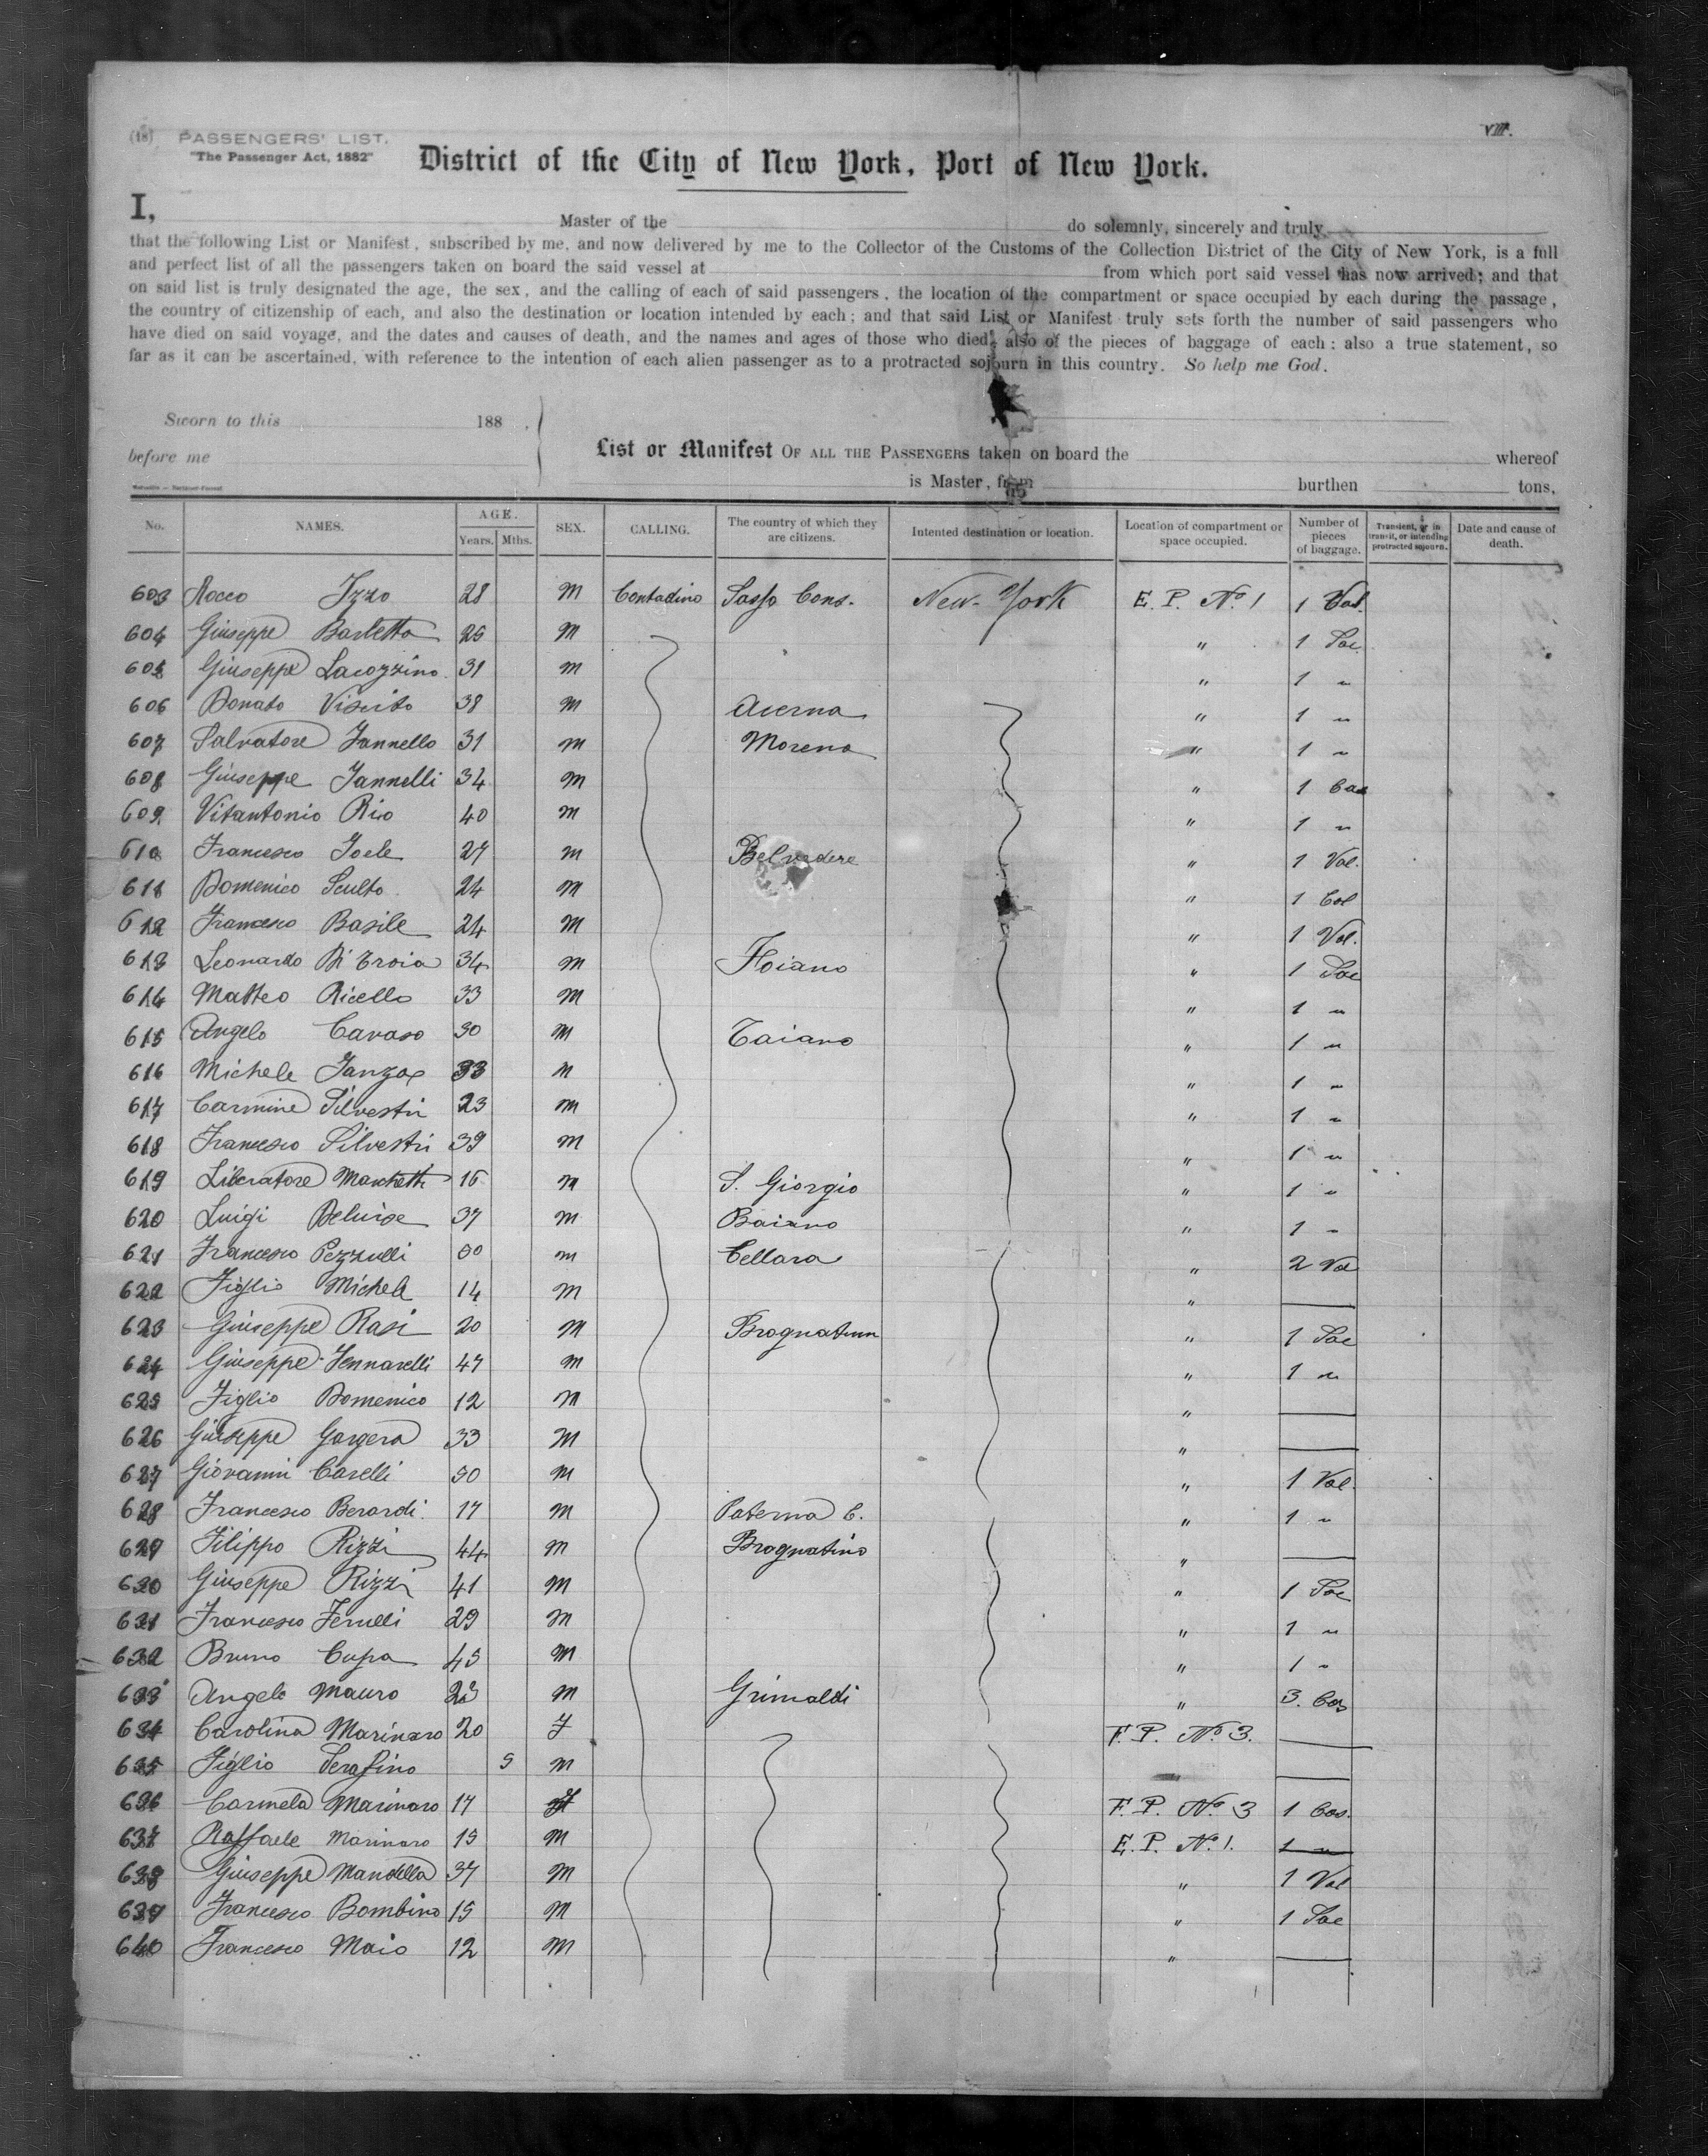 (18) PASSENGERS' LIST.
VIII.
"The Passenger Act, 1882"
District of the City of New York, Port of New York.
I, Master of the do solemnly, sincerely and truly
that the following List or Manifest, subscribed by me, and now delivered by me to the Collector of the Customs of the Collection District of the City of New York, is a full
and perfect list of all the passengers taken on board the said vessel at from which port said vessel has now arrived; and that
on said list is truly designated the age, the sex, and the calling of each of said passengers, the location of the compartment or space occupied by each during the passage,
the country of citizenship of each, and also the destination or location intended by each; and that said List or Manifest truly sets forth the number of said passengers who
have died on said voyage, and the dates and causes of death, and the names and ages of those who died; also of the pieces of baggage of each: also a true statement, so
far as it can be ascertained, with reference to the intention of each alien passenger as to a protracted sojourn in this country. So help me God.
Sworn to this 188 .
before me
List or Manifest OF ALL THE PASSENGERS taken on board the whereof
is Master, from burthen tons,
No. NAMES. AGE. Years. Mths. SEX. CALLING. The country of which they are citizens. Intented destination or location. Location of compartment or space occupied. Number of pieces of baggage. Transient, or in transit, or intending protracted sojourn. Date and cause of death.
603 Rocco Izzo 28 M Contadino Sasso Cons. New-York E. P. No. 1 1 Val.
604 Giuseppe Barletta 25 M " 1 Sac
605 Giuseppe Lacozzino 31 M " 1 "
606 Donato Viscito 38 M Acerna " 1 "
607 Salvatore Iannello 31 M Moreno " 1 "
608 Giuseppe Iannelli 34 M " 1 Cas
609 Vitantonio Rico 40 M " 1 "
610 Francesco Ioele 27 M Belvedere " 1 Val.
611 Domenico Sculto 24 M " 1 Col
612 Francesco Basile 24 M " 1 Val.
613 Leonardo Di Troia 34 M Foiano " 1 Sac
614 Matteo Ricello 33 M " 1 "
615 Angelo Cavaso 30 M Taiano " 1 "
616 Michele Janza 33 M " 1 "
617 Carmine Silvestri 23 M " 1 "
618 Francesco Silvestri 39 M " 1 "
619 Liberatore Manchetti 16 M S. Giorgio " 1 "
620 Luigi Deluise 37 M Baiano " 1 "
621 Francesco Pezzulli 50 M Cellara " 2 Val
622 Figlio Michele 14 M "
623 Giuseppe Rasi 20 M " 1 Sac
624 Giuseppe Jennarelli 47 M " 1 "
625 Figlio Domenico 12 M "
626 Giuseppe Gargera 33 M "
627 Giovanni Carelli 50 M " 1 Val.
628 Francesco Berardi 17 M Paterna C. " 1 "
629 Filippo Rizzi 44 M Brognatino "
630 Giuseppe Rizzi 41 M " 1 Sac
631 Francesco Ferulli 29 M " 1 "
632 Bruno Cupa 45 M " 1 "
633 Angelo Mauro 23 M Grimaldi " 3 Cas
634 Carolina Marinaro 20 F F. P. No. 3.
635 Figlio Serafino 5 M
636 Carmela Marinaro 17 F F. P. No. 3 1 Cas.
637 Raffaele Marinaro 15 M E. P. No. 1. 1 "
638 Giuseppe Mandella 37 M " 1 Val
639 Francesco Bombino 15 M " 1 Sac
640 Francesco Maio 12 M "